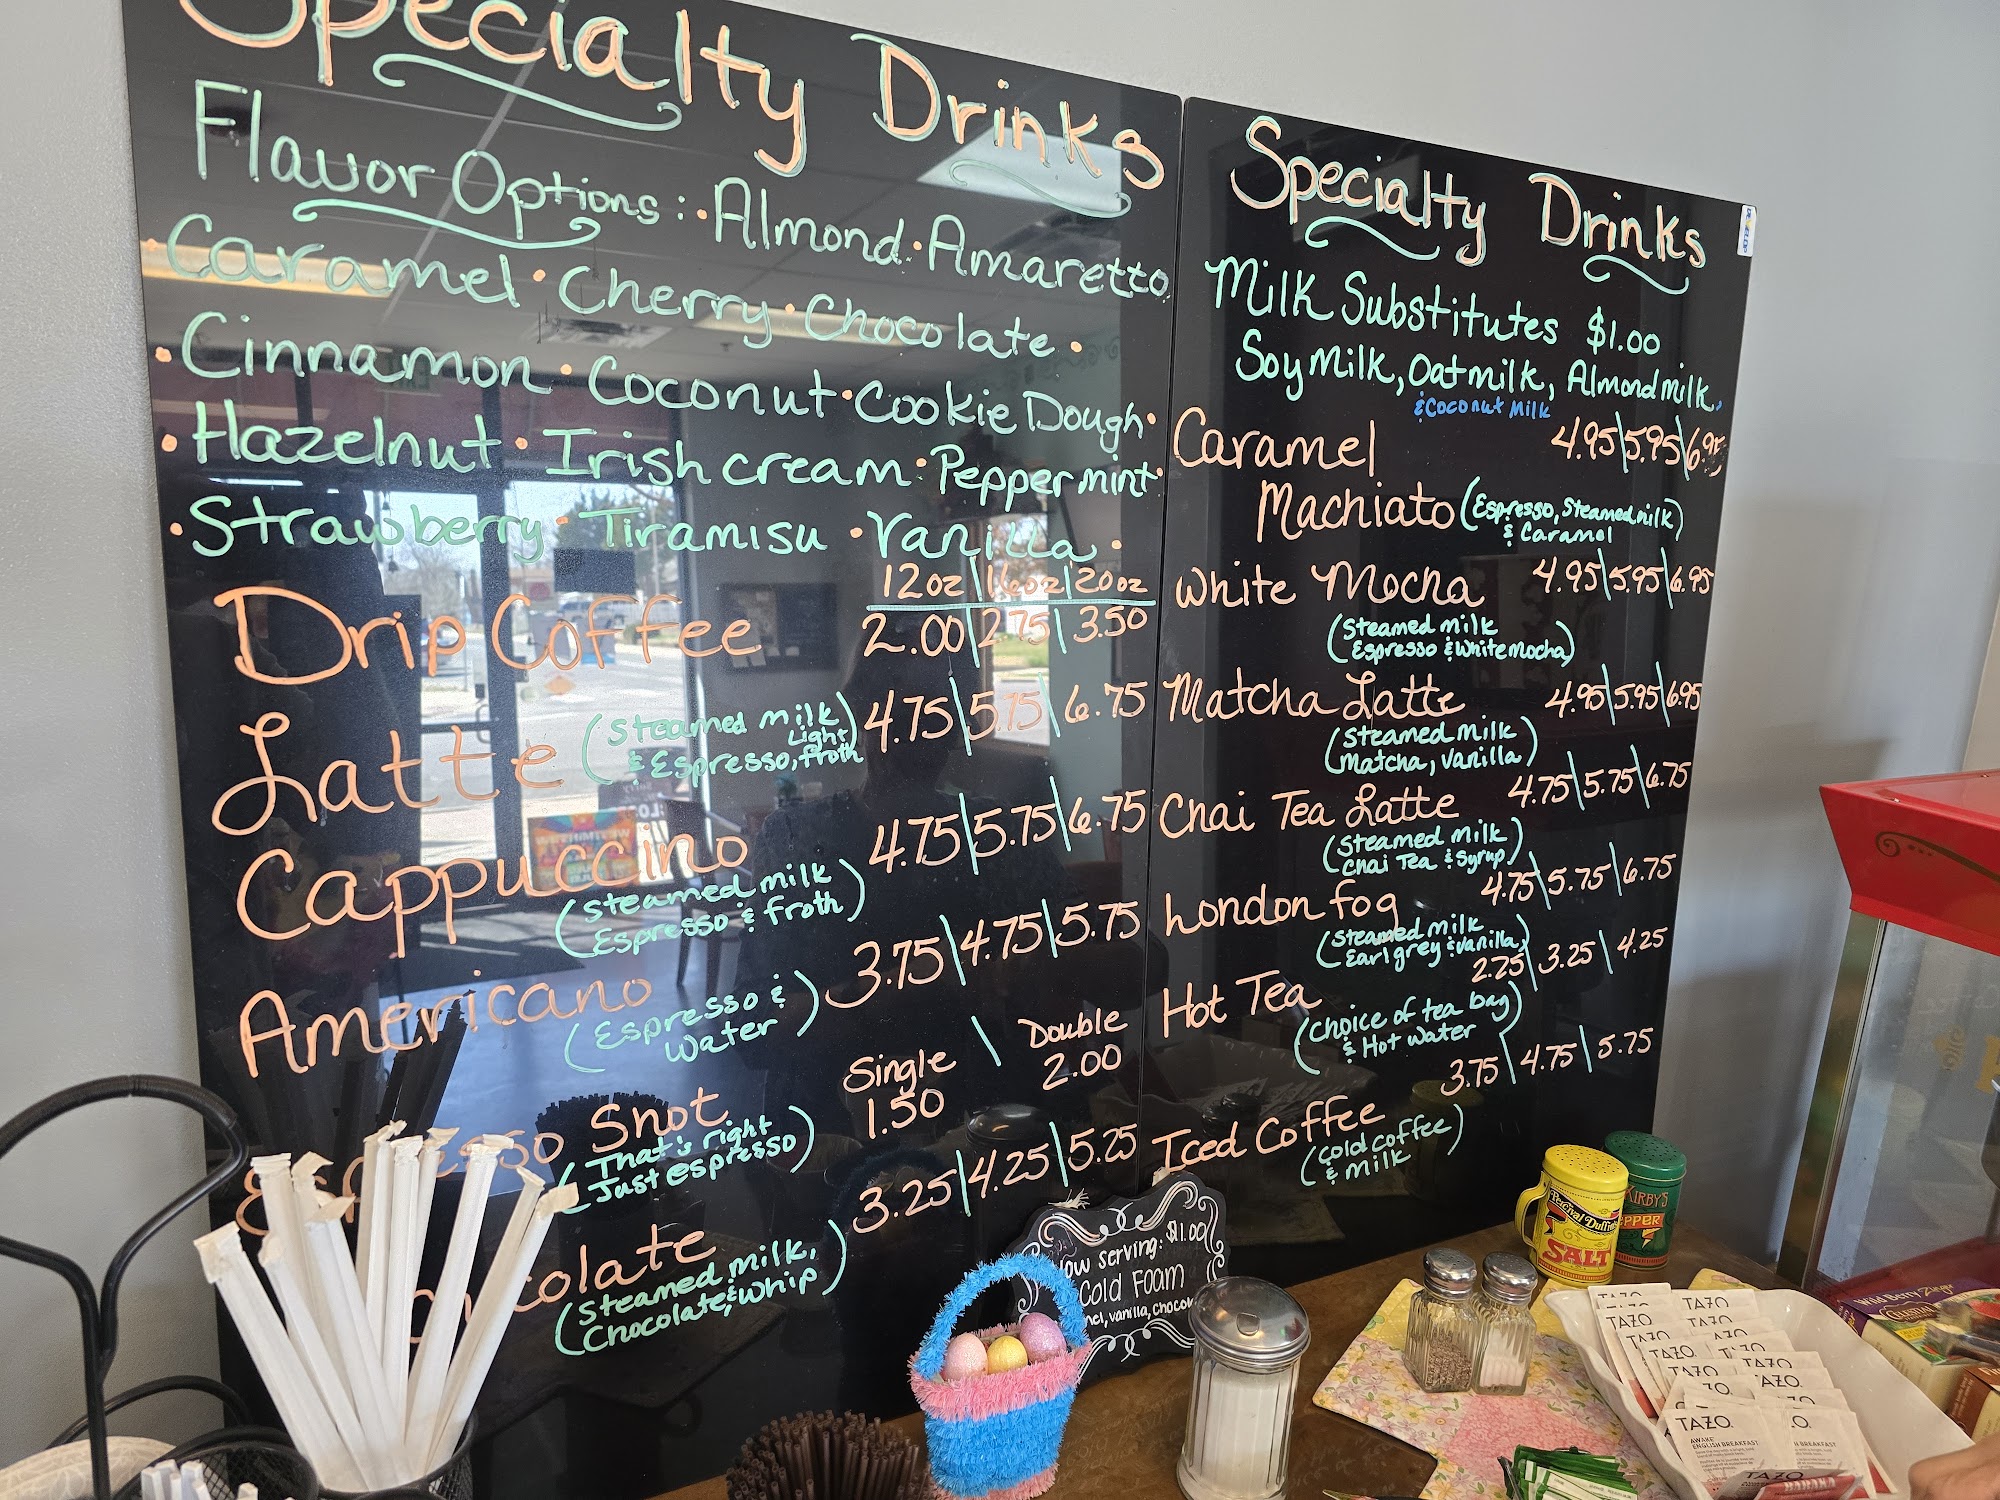 Specialty Drinks
Flavor Options: • Almond • Amaretto
• Caramel • Cherry • Chocolate •
• Cinnamon • Coconut • Cookie Dough •
• Hazelnut • Irish cream • Peppermint •
• Strawberry • Tiramisu • Vanilla •
12oz | 16oz | 20oz
Drip Coffee 2.00 | 2.75 | 3.50
Latte (steamed milk 4.75 | 5.75 | 6.75
& Espresso, Light froth)
Cappuccino 4.75 | 5.75 | 6.75
(steamed milk
Espresso & froth)
Americano 3.75 | 4.75 | 5.75
(Espresso &
water)
Single \ Double
Espresso Shot 1.50 2.00
(That's right
Just espresso)
3.25 | 4.25 | 5.25
colate
(steamed milk,
chocolate, & whip)
Specialty Drinks
Milk Substitutes $1.00
Soy Milk, Oat milk, Almond milk,
& Coconut Milk
Caramel 4.95 | 5.95 | 6.95
Machiato (Espresso, steamed milk
& Caramel)
White Mocha 4.95 | 5.95 | 6.95
(steamed milk
Espresso & white mocha)
Matcha Latte 4.95 | 5.95 | 6.95
(steamed milk
matcha, vanilla)
Chai Tea Latte 4.75 | 5.75 | 6.75
(steamed milk
chai Tea & syrup)
London fog 4.75 | 5.75 | 6.75
(steamed milk
Earl grey & vanilla)
Hot Tea 2.25 | 3.25 | 4.25
(choice of tea bag
& Hot water)
Iced Coffee 3.75 | 4.75 | 5.75
(cold coffee
& milk)
Now Serving: $1.00
Cold Foam
vanilla,
Percival Duffin's
SALT
KIRBY'S
PEPPER
TAZO
TAZO
TAZO
TAZO
TAZO
TAZO
TAZO.
AWAKE
ENGLISH BREAKFAST
TAZO
Wild Berry Zinger